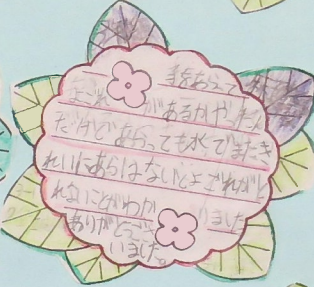 手をあらって
よごれ があるかやったん
だけどあらっても水でまたき
れいにあらはないとよごれがと
れないことがわか りました
ありがとうござ
いました。